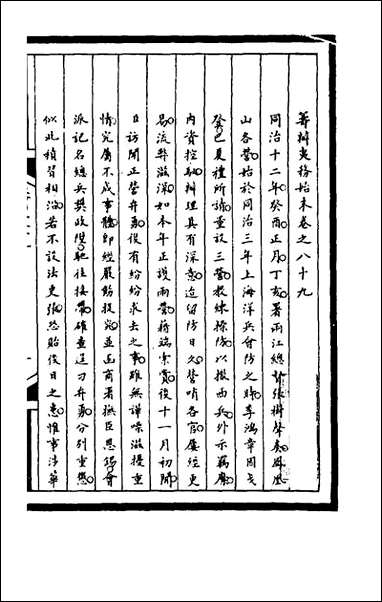 籌辦夷務始末卷之八十九
同治十二年癸酉正月丁亥署兩江總督張樹聲奏鳳凰
山各營始於同治三年上海洋兵會防之時李鴻章因戈
登巴夏禮所請量設三營教練操防以撥西兵外示羈縻
內資控馭辦理具有深意迨留防日久營哨各官屢經更
易流弊滋深如本年正護兩營蔣瑞案賞後十一月初間
日訪聞正營弁勇復有紛紛求去之事雖無譁噪滋擾重
情究屬不成事體即經嚴飭提究並函商署撫臣恩錫會
派記名總兵樊政陞馳往接帶確查逞刁弁勇分別重懲
似此積習相沿若不設法更張恐貽後日之患惟事涉華